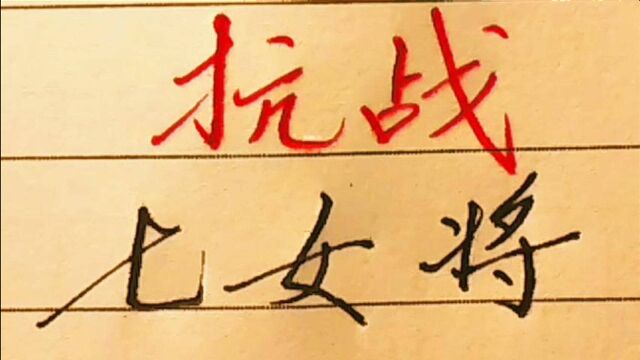 抗战
七女将